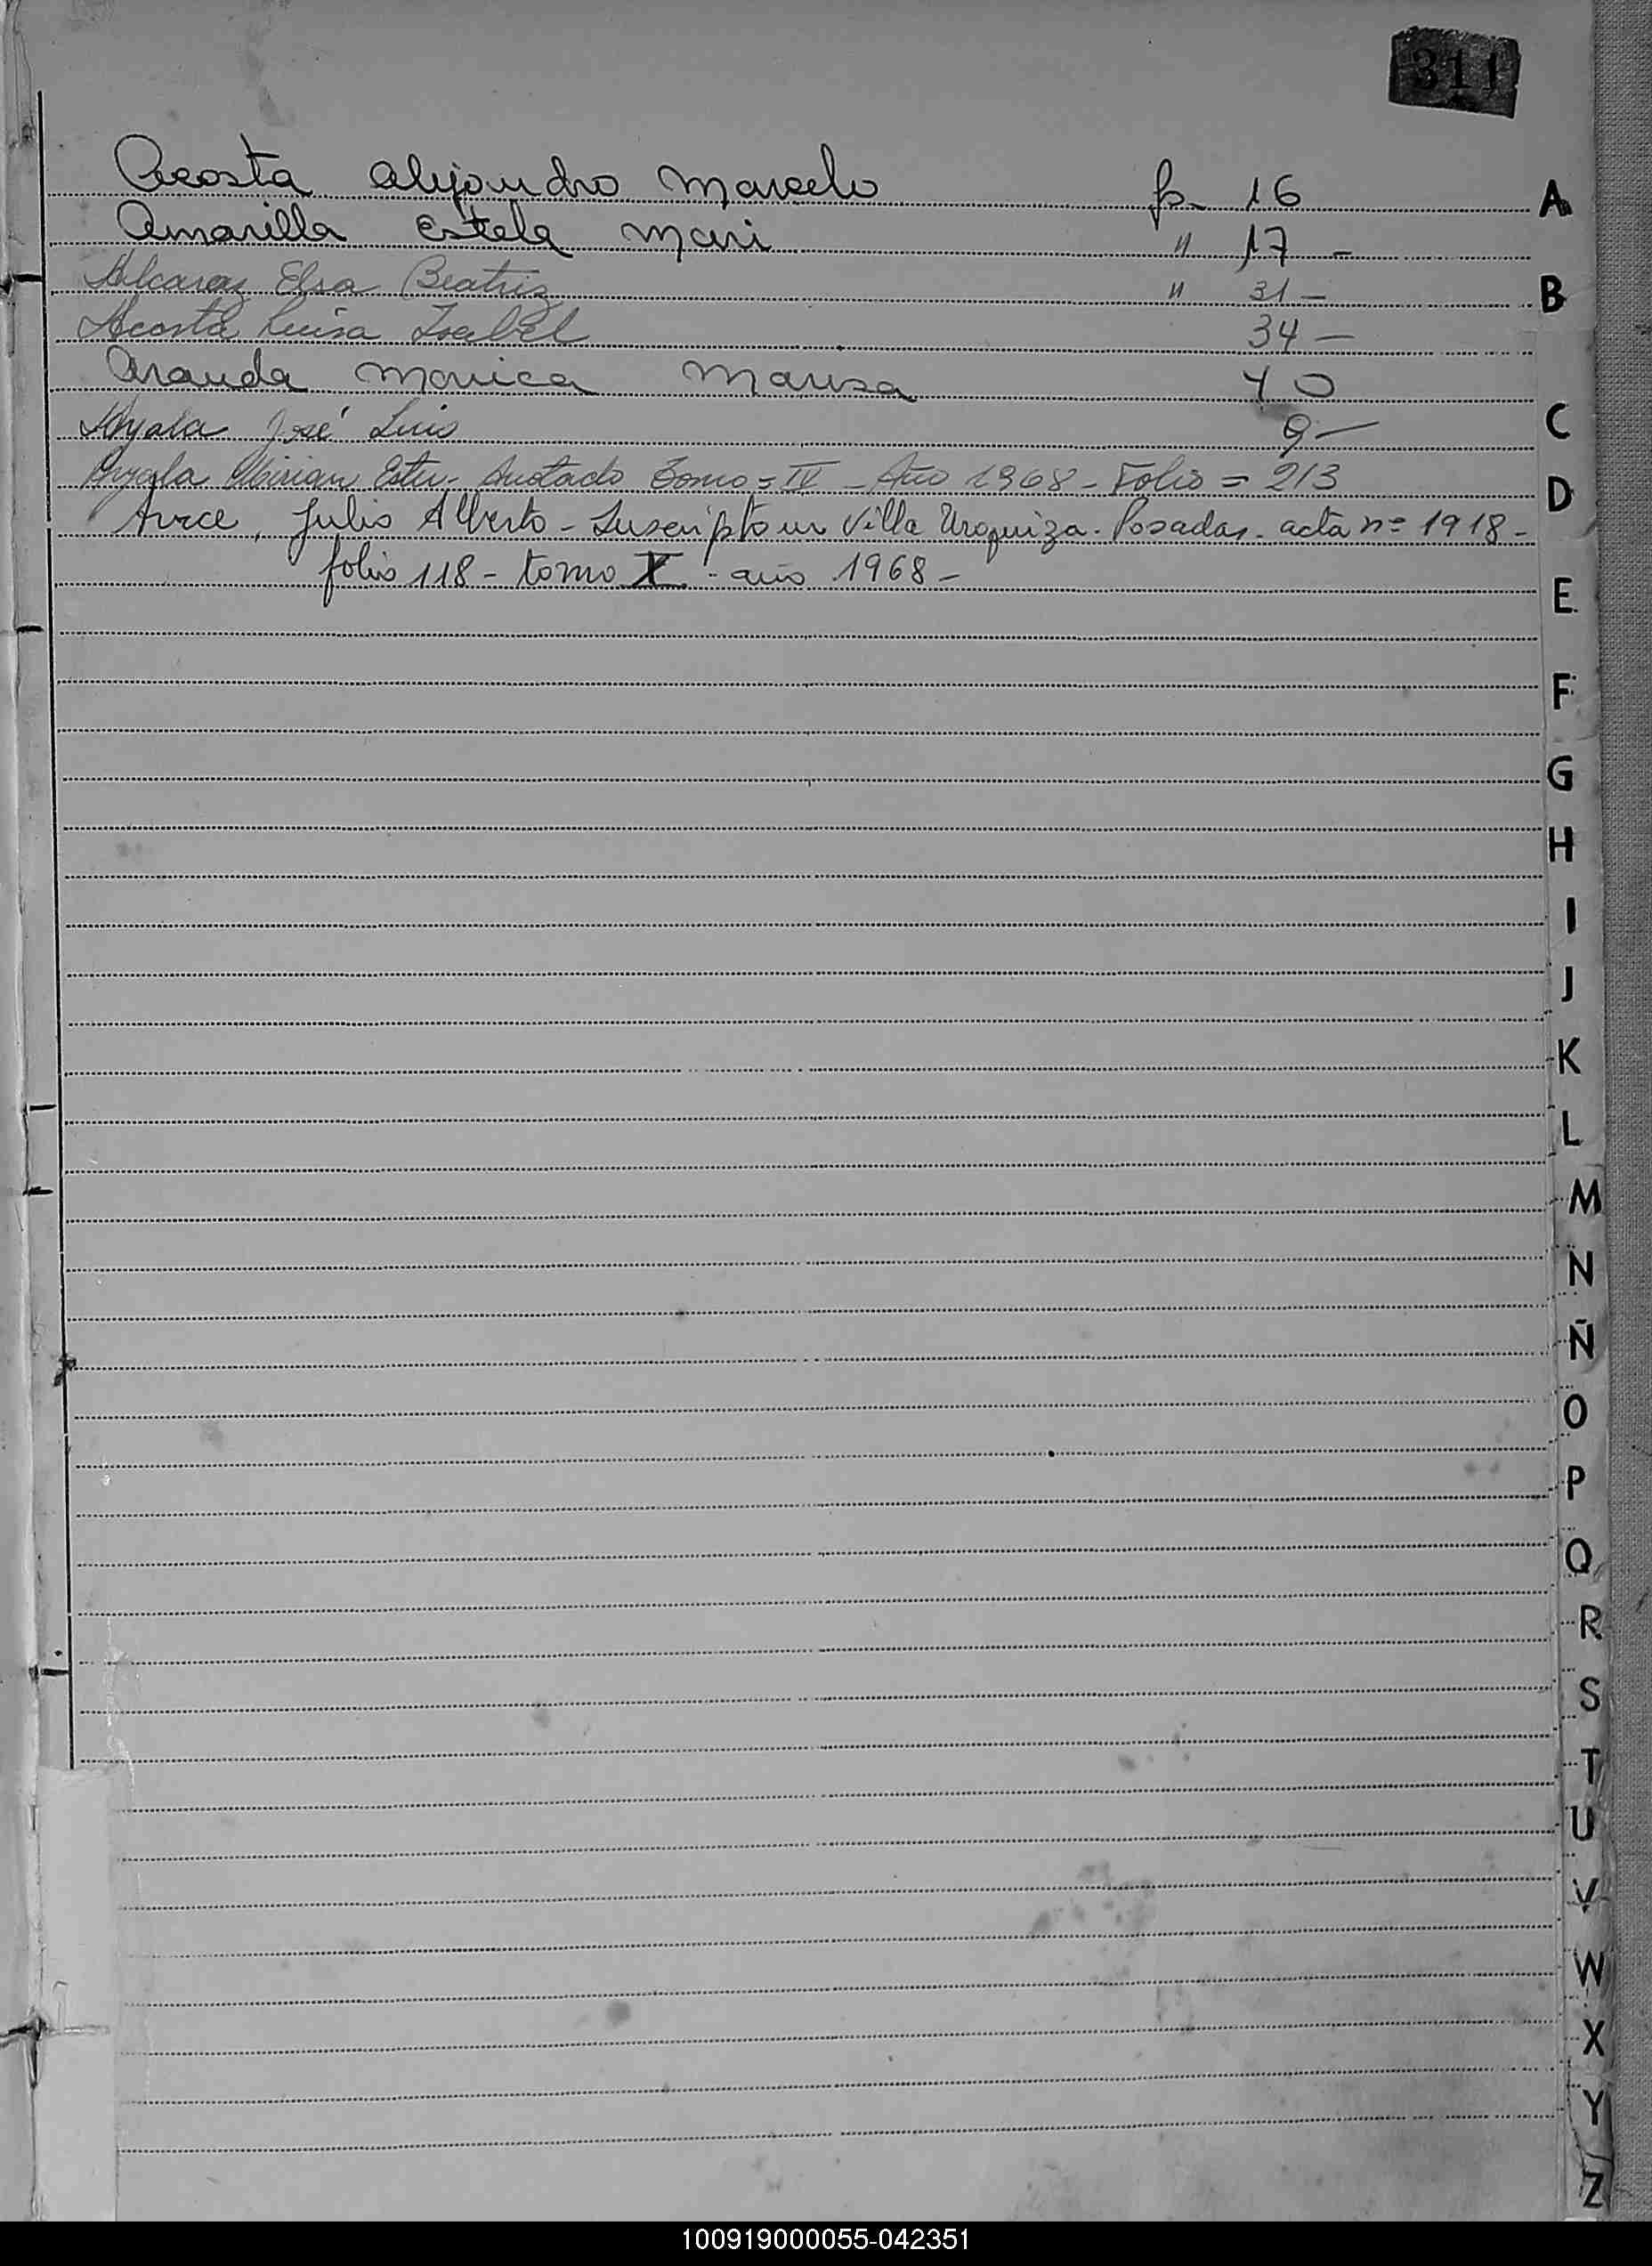 311
Acosta Alejandro Marcelo fs. 16 A
Amarilla Estela Mari " 17 -
Alcaraz Elsa Beatriz " 31 - B
Acosta Luisa Isabel 34 -
Aranda Monica Marisa 40
Ayala José Luis 9 - C
Ayala Mirian Ester - Anotado Tomo = IV - Año 1968 - Folio = 213 D
Arce, Julio Alberto - Inscripto en Villa Urquiza - Posadas - acta nº 1918 -
folio 118 - tomo X - año 1968 -
E
F
G
H
I
J
K
L
M
N
Ñ
O
P
Q
R
S
T
U
V
W
X
Y
Z
100919000055-042351